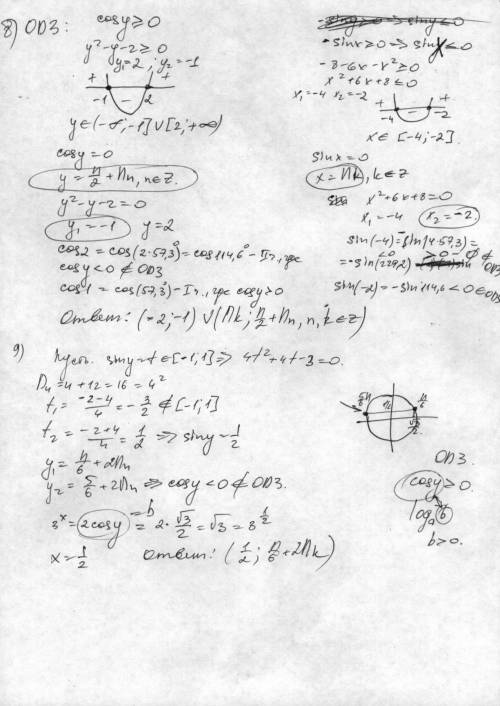 8) ОДЗ: cosy ≥ 0
y²-y-2 ≥ 0
y₁=2, y₂=-1
+ - +
-1 2
y∈(-∞;-1]∪[2;+∞)
cosy=0
y = π/2 + πn, n∈Z.
y²-y-2=0
y₁=-1 y=2
cos2 = cos(2·57,3°) = cos114,6° - II ч, где
cosy<0 ∉ ОДЗ
cos1 = cos(57,3°) - I ч, где cosy>0
-siny≥0 ⇒ siny≤0
-sinx≥0 ⇒ sinx≤0
-8-6x-x²≥0
x²+6x+8≤0
x₁=-4 x₂=-2
+ - +
-4 -2
x∈[-4;-2]
sinx=0
x=πk, k∈Z
x²+6x+8=0
x₁=-4 x₂=-2.
sin(-4)=-sin(4·57,3)=
=-sin(229,2) >0 - ∉ ОДЗ
sin(-2)=-sin114,6<0∈ОДЗ
Ответ: (-2;-1)∪(πk; π/2+πn, n,k∈Z)
9) Пусть siny=t∈[-1;1] ⇒ 4t²+4t-3=0.
D₄=4+12=16=4²
t₁ = (-2-4)/4 = -3/2 ∉[-1;1]
t₂ = (-2+4)/4 = 1/2 ⇒ siny=1/2
y₁ = π/6 + 2πn
y₂ = 5/6 + 2πn ⇒ cosy<0 ∉ ОДЗ.
3ˣ = 2cosy = b = 2·√3/2 = √3 = 3^(1/2)
x = 1/2 Ответ: (1/2; π/6+2πk)
5π/6 π/6
√3/2
ОДЗ.
cosy>0.
logₐb
b>0.